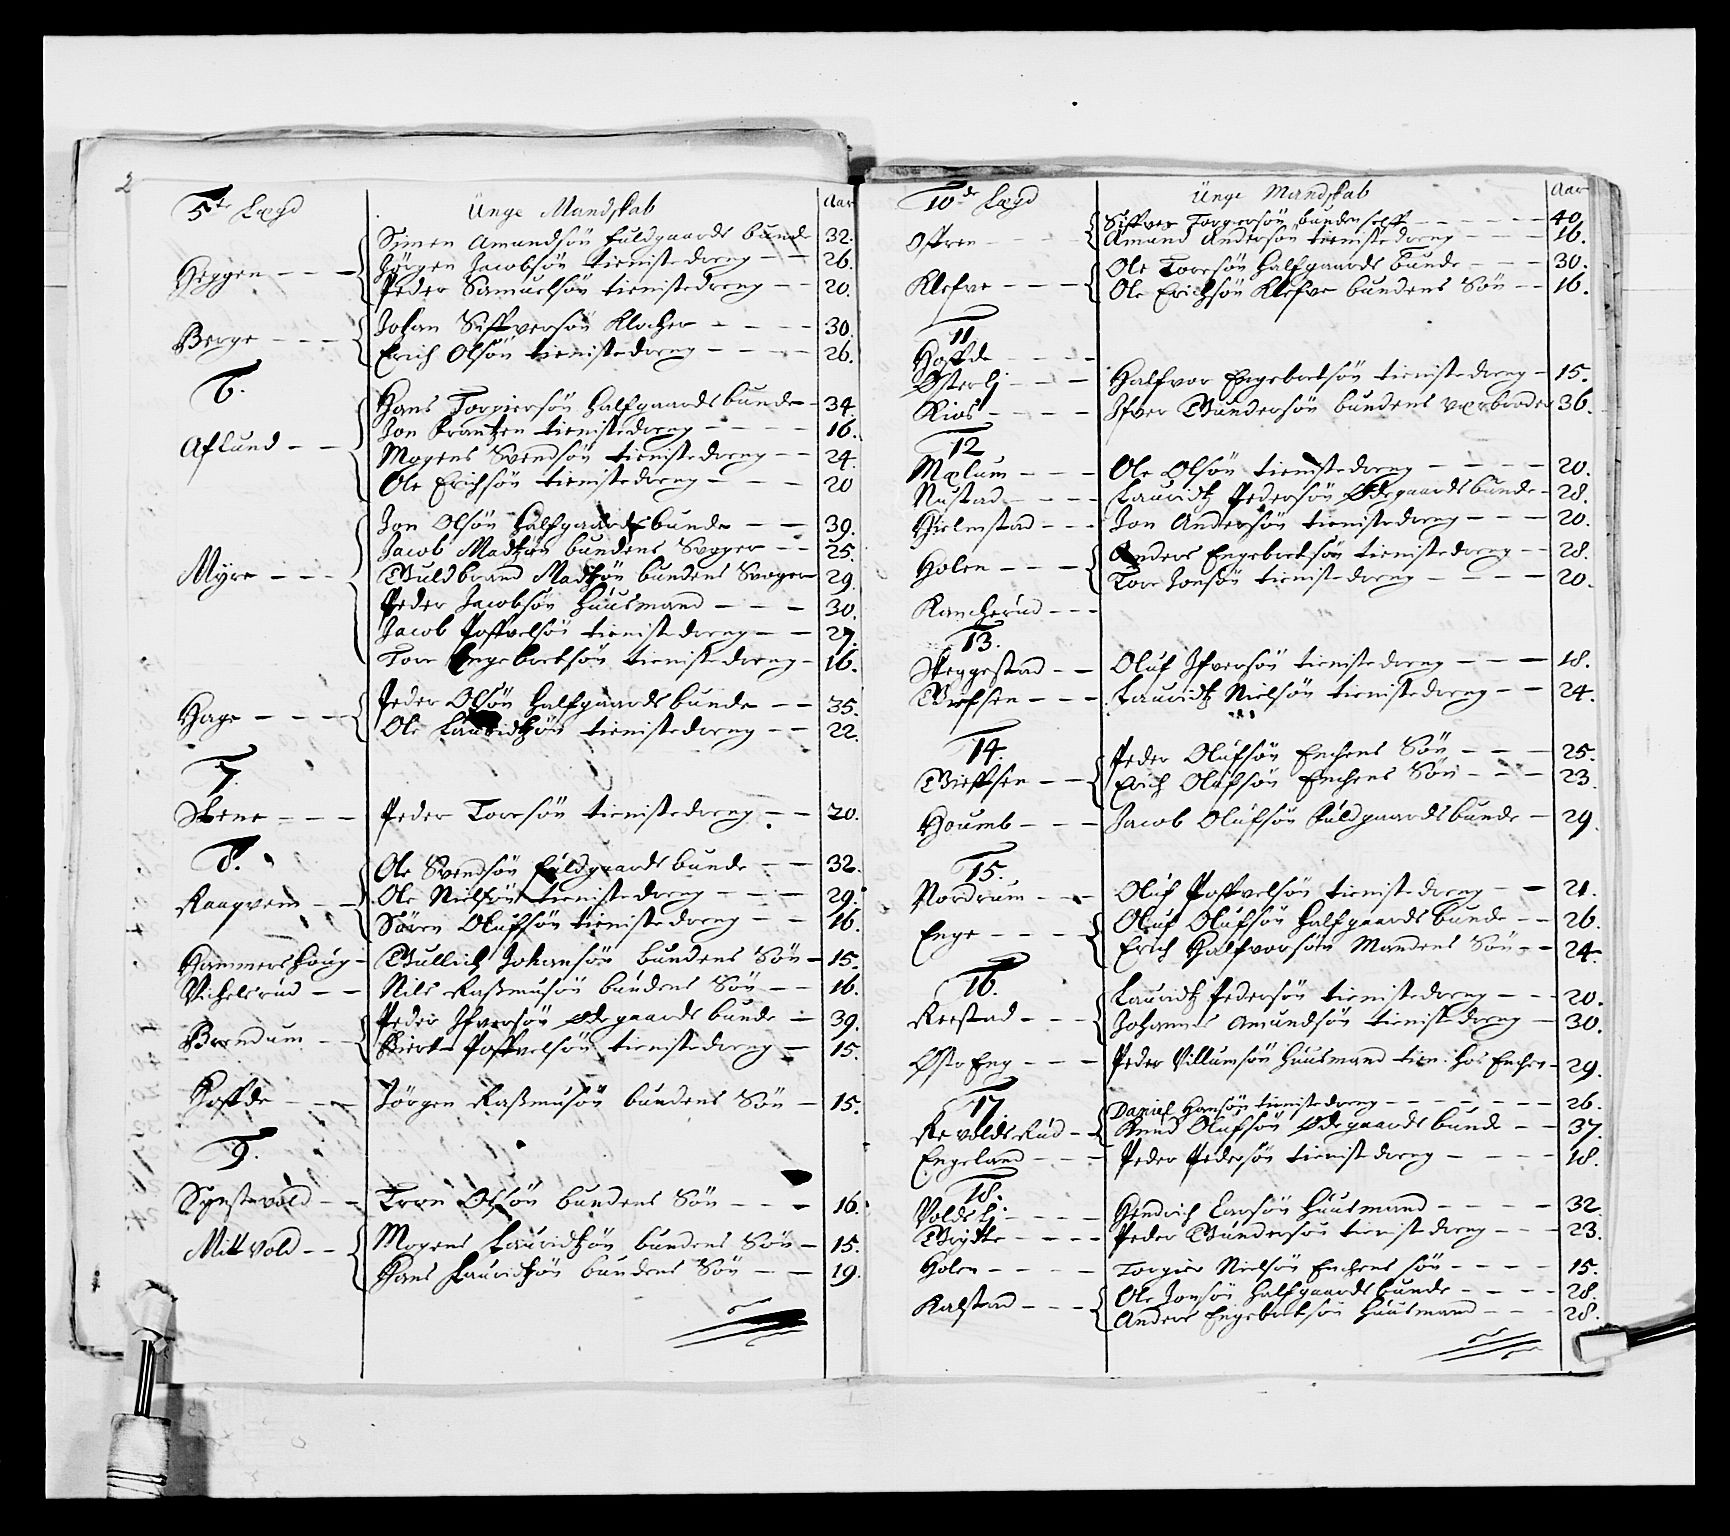 2
5te Lægd Unge Mandskab Aar
Simen Amundsøn fuldgaards bunde 32.
Heggen - - - Jørgen Jacobsøn tienistedreng - - 26.
Peder Samuelsøn tienistedreng - - 20.
Johan Siffversøn Klocher - - - - 30.
Berge - - - Erich Olsøn tienistedreng - - - - 26.
6.
Hans Torgiersøn halfgaards bunde - 34.
Aslund - - Jon Frantzen tienistedreng - - - - 16.
Mogens Svendsøn tienistedreng - - 24.
Ole Erichsøn tienistedreng - - - 20
Jon Olsøn halfgaards bunde - - 39.
Jacob Madtzøn bundens Svoger - - 25.
Myre - - - Guldbrand Madtzøn bundens Svoger 29.
Peder Jacobsøn huusmand - - - 30.
Jacob Poffvelsøn tienistedreng - - 27.
Tore Engebretsøn tienistedreng - 16.
Hage - - - - Peder Olsøn halfgaards bunde - - 35.
Ole Lauridtzøn tienistedreng - - 22.
7.
Stene - - - Peder Toresøn tienistedreng - - 20.
8.
Ole Svendsøn fuldgaards bunde - - 32.
Raaqvem - - Ole Nielsøn tienistedreng - - - 29.
Søren Olufsøn tienistedreng - - 16.
Hammershoug - Gullich Johansøn bundens Søn - 15.
Vichelsrud - - Nils Rasmusøn bundens Søn - - 16.
Brendum - - Peder Ifversøn Ødegaards bunde - 39.
Biert Poffvelsøn tienistedreng - 15.
Hoffde - - - Jørgen Rasmusøn bundens Søn - 15.
9.
Synstevold - - Tore Olsøn bundens Søn - - - 16.
Mittvold - - Mogens Lauridtzøn bundens Søn - 15.
Hans Lauridtzøn bundens Søn - - 19.
10de Lægd Unge Mandskab Aar
Siffver Torgersøn bunden self - - - - - - 40.
Ofren - - - - Amund Andersøn tienistedreng - - - - 16.
Klefve - - - Ole Toresøn halfgaards bunde - - - 30.
Ole Erichsøn Klefve bundens Søn - - 16.
11
Hoffde - - - -
Østerli - - - Halfvor Engebretsøn tienistedreng - 15.
Rios - - - - Ifver Gundersøn bundens værbroder 36.
12
Mælum - - - Ole Olsøn tienistedreng - - - - 20.
Nustad - - - Lauridtz Pedersøn Ødegaards bunde - 28.
Hielmstad - - - Jon Andersøn tienistedreng - - - 20.
Holen - - - Anders Engebretsøn tienistedreng - - 28.
Tore Jonsøn tienistedreng - - - - 20.
Kancherud - - -
13.
Skeggestad - - Oluf Ifversøn tienistedreng - - - 18.
Giefsen - - - Lauridtz Nielsøn tienistedreng - - 24.
14.
Peder Olufsøn Enchens Søn - - - 25.
Gieffsen - - Erich Olufsøn Enchens Søn - - - 23.
Houmb - - - Jacob Olufsøn fuldgaards bunde - 29.
15.
Nordrum - - - Oluf Poffvelsøn tienistedreng - - 21.
Enge - - - - Oluf Olufsøn halfgaards bunde - - 26.
Erich Halfvorsøn Mandens Søn - - 24.
16.
Reestad - - - Lauridtz Pedersøn tienistedreng - - - 20.
Johannes Amundsøn tienistedreng - 30.
Østr Eng - - - Peder Villumsøn huusmand tien: hos Enchen - 29.
17
Daniel Hansøn tienistedreng - - - - - - 26.
Revoldsrud - - Knud Olufsøn Ødegaards bunde - - 37.
Engeland - - - Peder Pedersøn tienistdreng - - - - 18.
18.
Voldsli - - - - Hendrich Larsøn huusmand - - - - 32.
Grytte - - - - Peder Gundersøn tienistdreng - - - 23.
Holen - - - - Torgier Nielsøn Enchens søn - - - - 15.
Kalstad - - - Ole Jonsøn halfgaards bunde - - - - 28.
Anders Engebretsøn huusmand - - - 28.